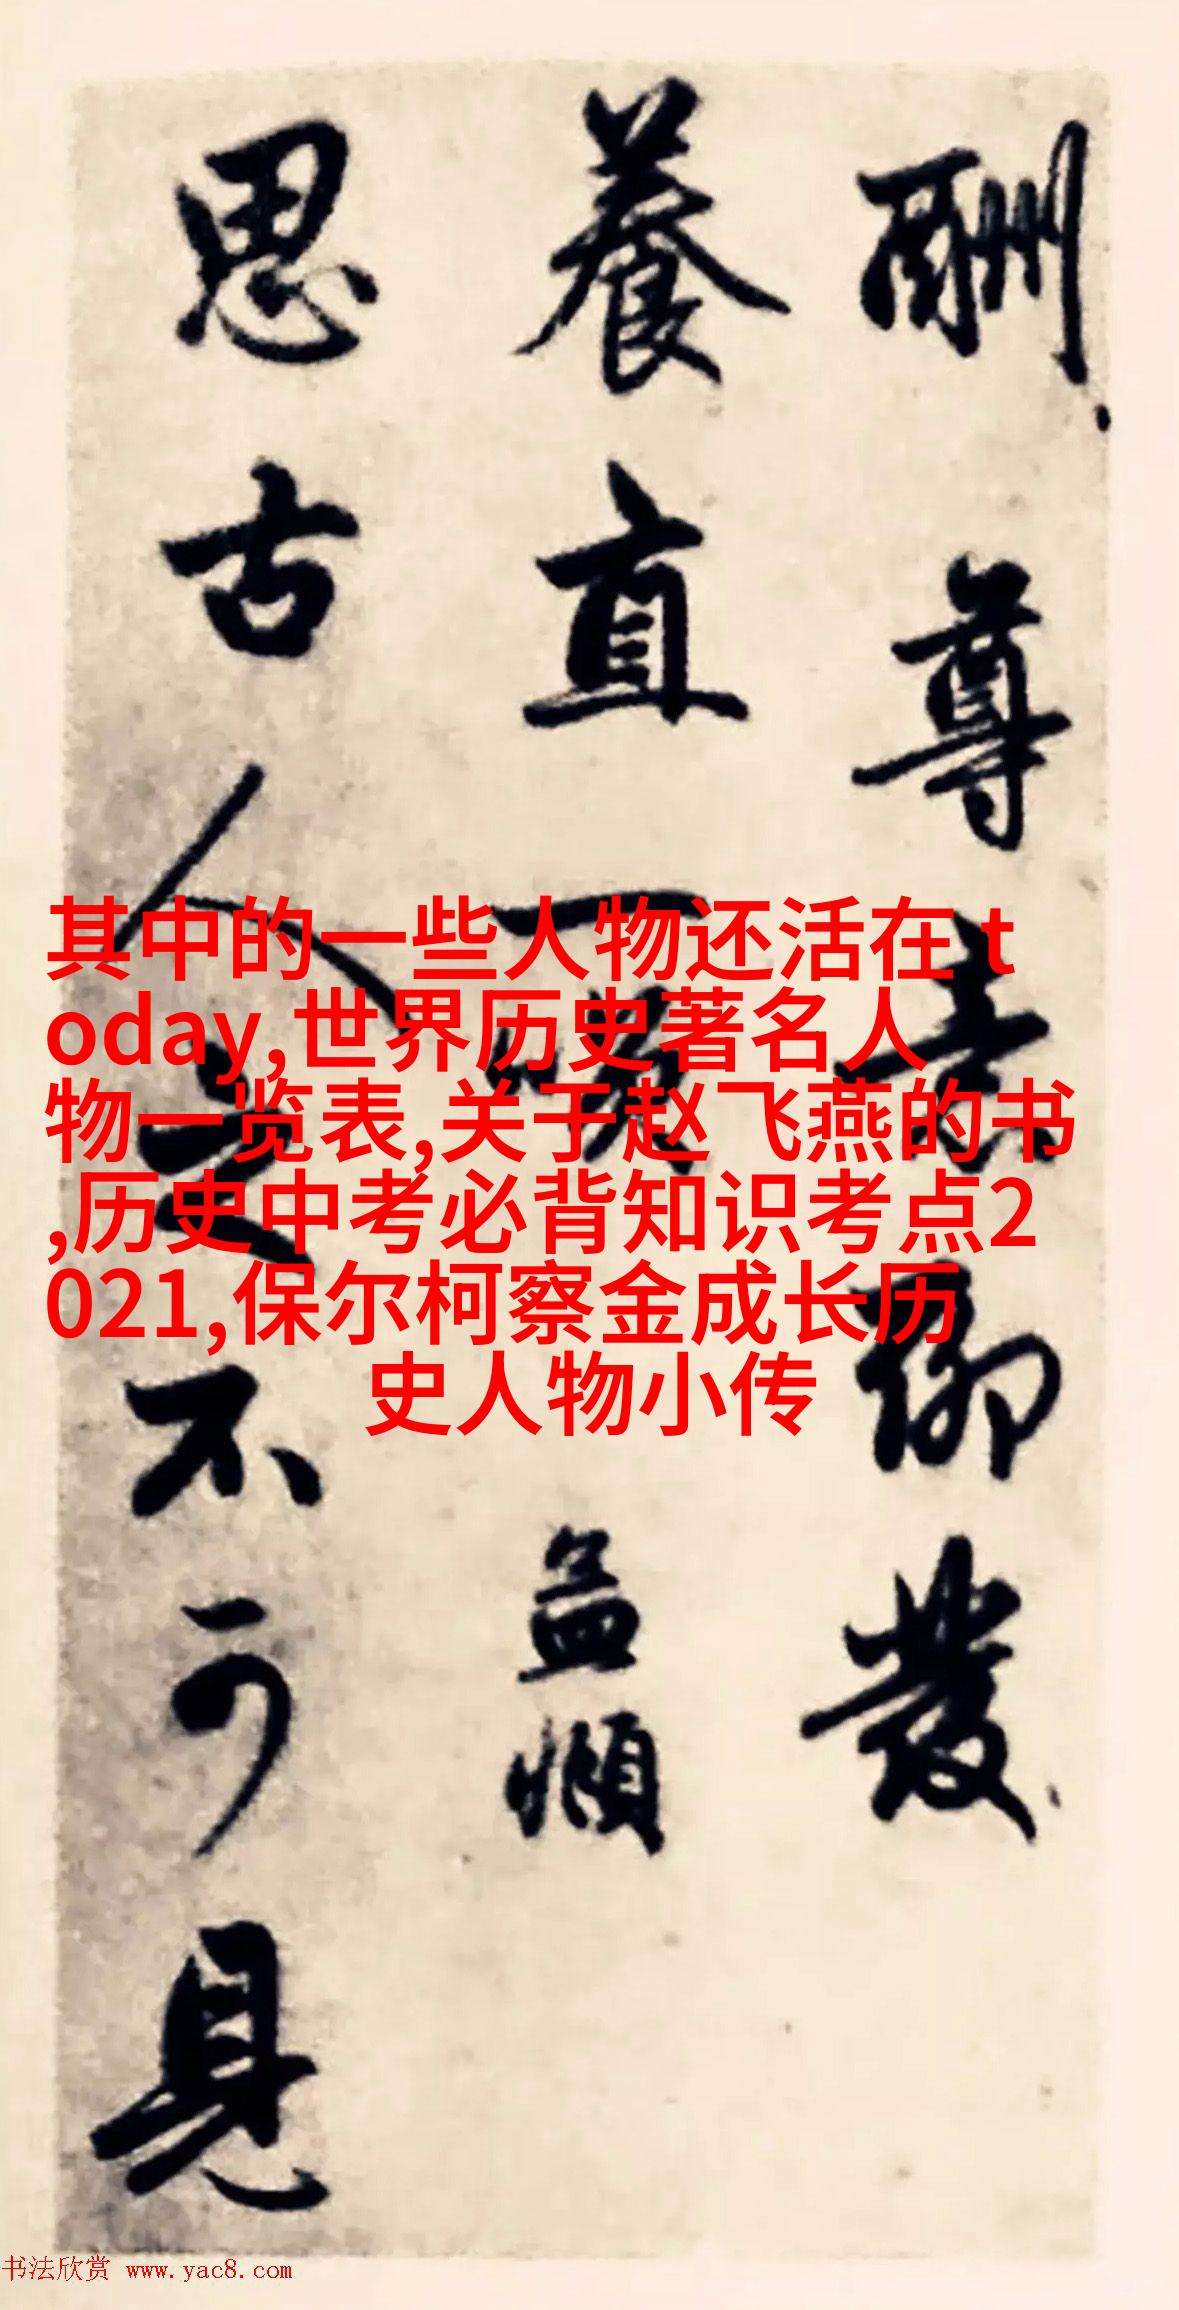 其中的一些人物还活在 t
oday,世界历史著名人
物一览表,关于赵飞燕的书
,历史中考必背知识考点2
021,保尔柯察金成长历
史人物小传
酬尊聊發
養直孟頫
思古人之不可見
书法欣赏 www.yac8.com